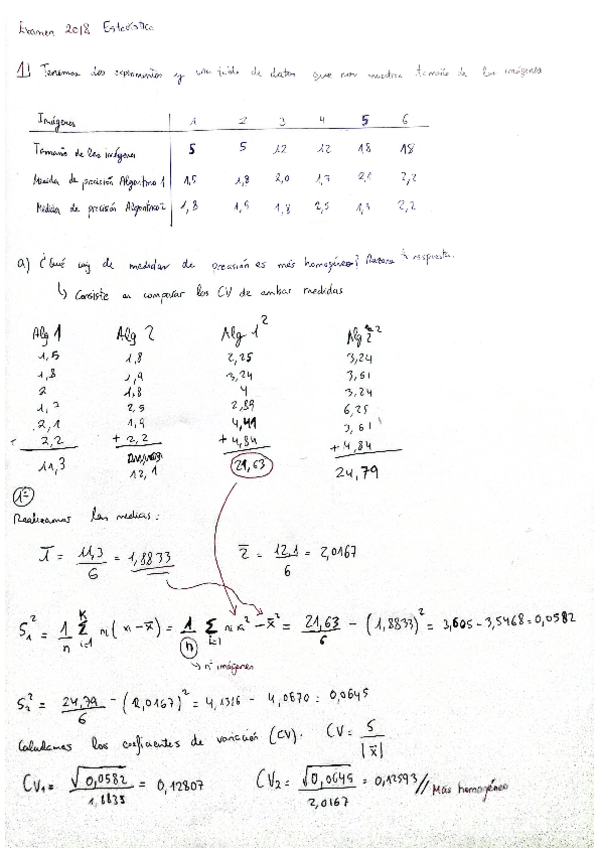 Examen 2018 Estadística
1) Tenemos dos experimentos y una tabla de datos que nos muestra tamaño de las imágenes
Imágenes 1 2 3 4 5 6
Tamaño de las imágenes 5 5 12 12 18 18
Medida de precisión Algoritmo 1 1,5 1,8 2,0 1,7 2,1 2,2
Medida de precisión Algoritmo 2 1,8 1,9 1,8 2,5 1,9 2,2
a) ¿Qué de medidas de precisión es más homogénea? respuesta.
↳ Consiste en comparar los CV de ambas medidas
Alg 1 Alg 2 Alg 1² Alg 2²
1,5 1,8 2,25 3,24
1,8 1,9 3,24 3,61
2 1,8 4 3,24
1,7 2,5 2,89 6,25
2,1 1,9 4,41 3,61
+ 2,2 + 2,2 + 4,84 + 4,84
11,3 12,1 21,63 24,79
1º
Realizamos las medias:
1̅ = 11,3/6 = 1,8833 2̅ = 12,1/6 = 2,0167
S₁² = 1/n Σ ni(xi - x̅) = 1/n Σ ni xi² - x̅² = 21,63/6 - (1,8833)² = 3,605 - 3,5468 = 0,0582
↳ nº imágenes
S₂² = 24,79/6 - (2,0167)² = 4,1316 - 4,0670 = 0,0645
Calculamos los coeficientes de variación (CV). CV = S/|x̅|
CV₁ = √0,0582/1,8833 = 0,12807 CV₂ = √0,0645/2,0167 = 0,12593 // Más homogéneo